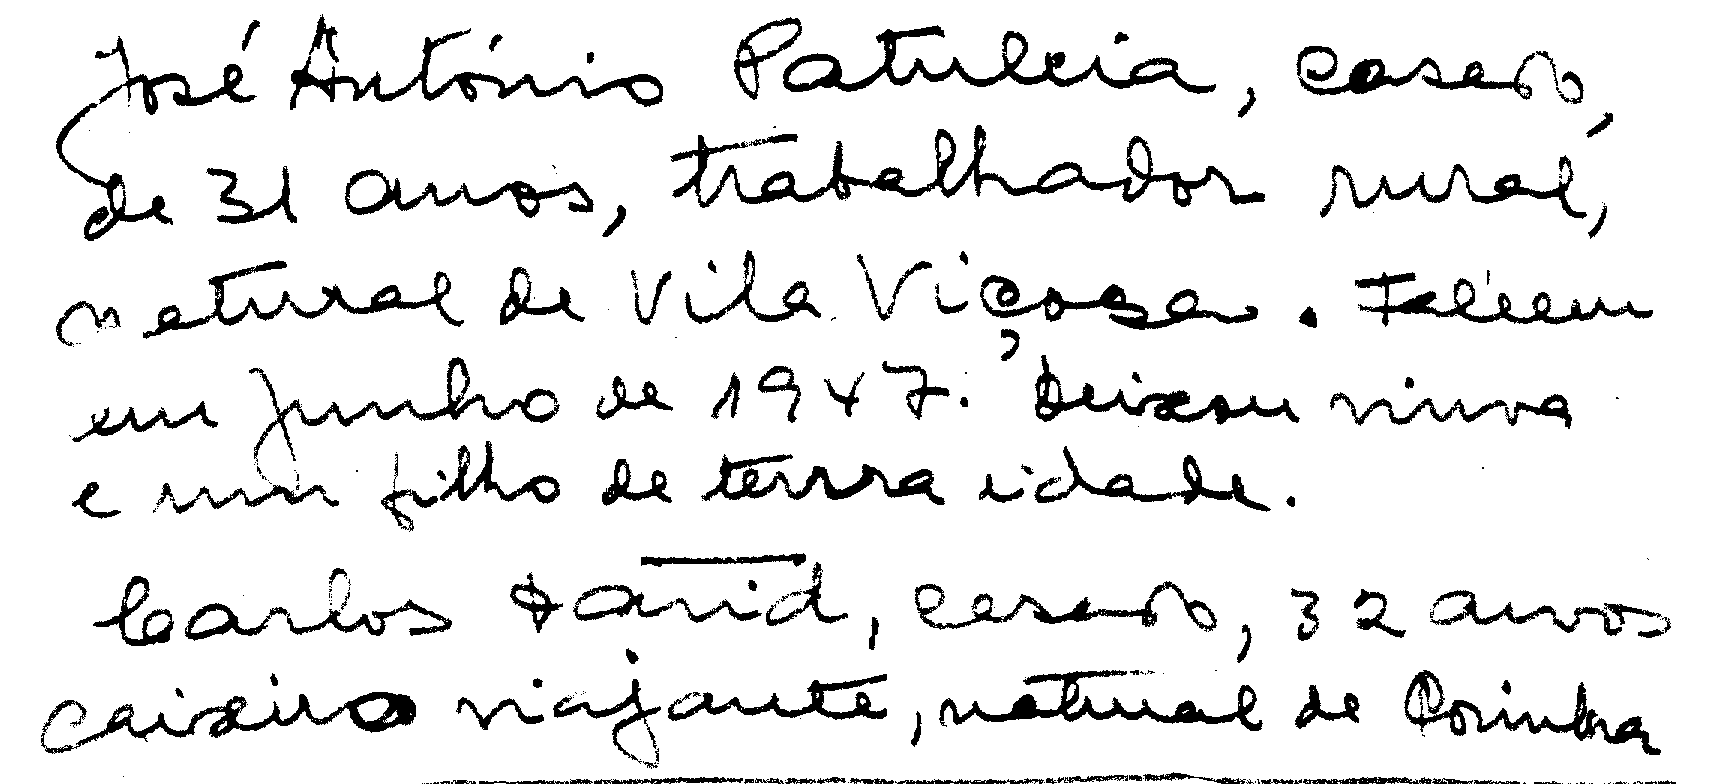 José António Patuleia, casado,
de 31 anos, trabalhador rural,
natural de Vila Viçosa. Faleceu
em Junho de 1947. Deixou viuva
e um filho de terra idade.
Carlos David, casado, 32 anos
caixeiro viajante, natural de Coimbra